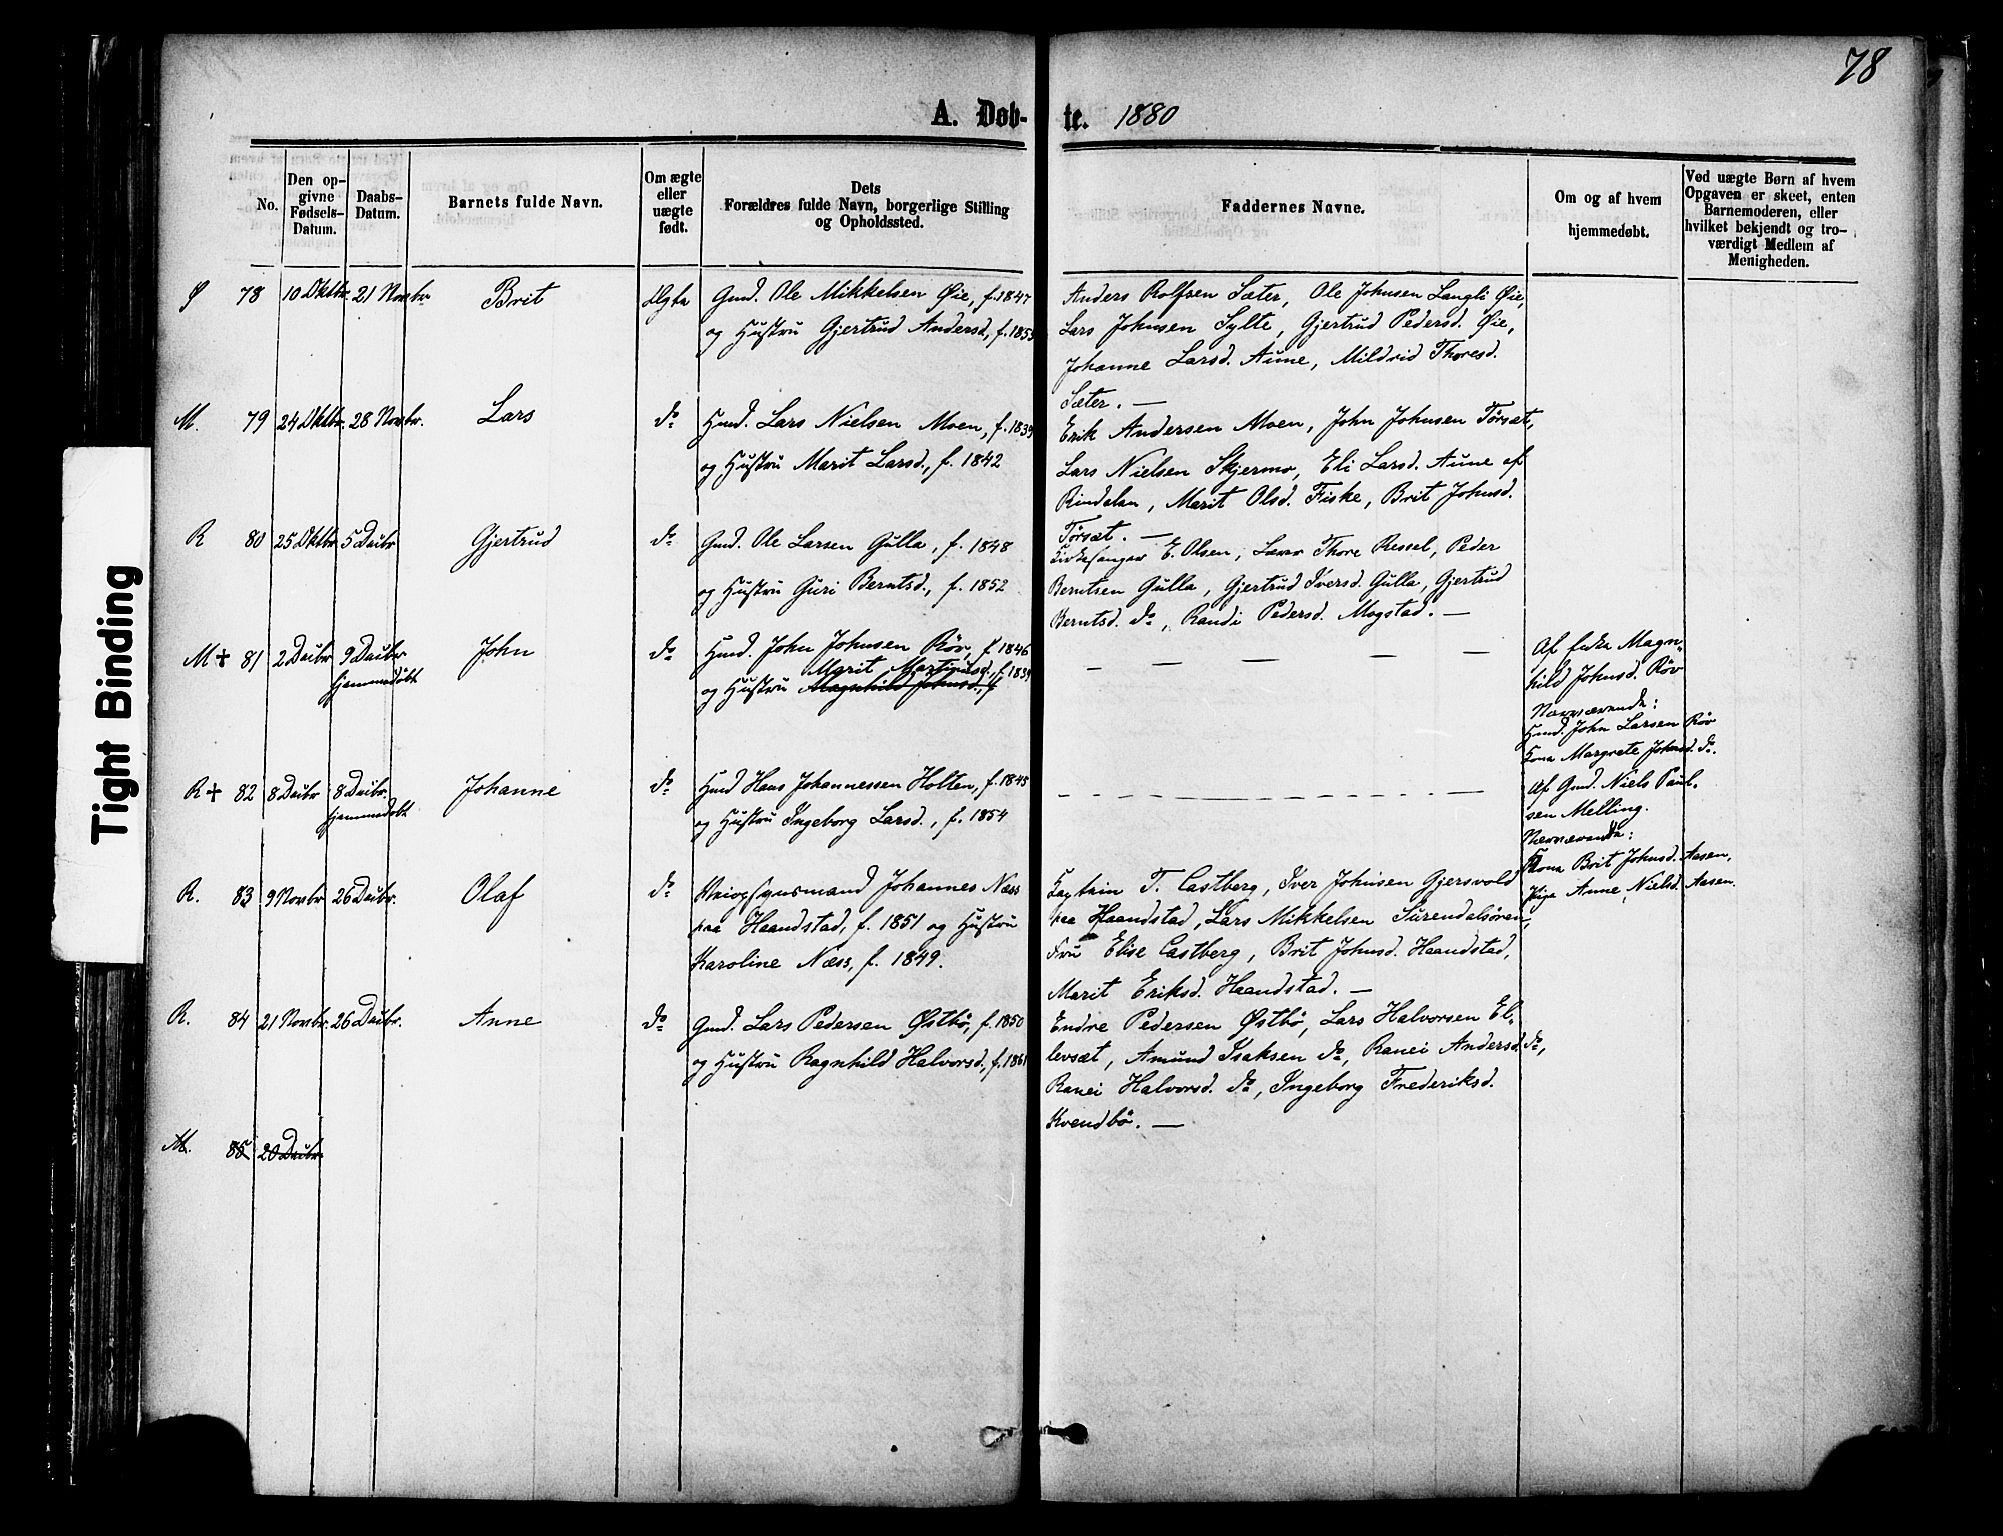 78
A. Døb-
te. 1880
No.
Den op-
givne
Fødsels-
Datum.
Daabs-
Datum.
Barnets fulde Navn.
Om ægte
eller
uægte
født.
Dets
Forældres fulde Navn, borgerlige Stilling
og Opholdssted.
Faddernes Navne.
Om og af hvem
hjemmedøbt.
Ved uægte Børn af hvem
Opgaven er skeet, enten
Barnemoderen, eller
hvilket bekjendt og tro-
værdigt Medlem af
Menigheden.
Ø 78 10 Oktbr. 21 Novbr Brit Ægte Gmd. Ole Mikkelsen Øie, f. 1847
og Hustru Gjertrud Andersd., f. 1853
Anders Rolfsen Sæter, Ole Johnsen Langli Øie,
Lars Johnsen Sylte, Gjertrud Pedersd. Øie,
Johanne Larsd. Aune, Mildrid Thoresd.
Sæter. —
M. 79 24 Oktbr. 28 Novbr. Lars do Hmd. Lars Nielsen Moen, f. 1839
og Hustru Marit Larsd., f. 1842
Erik Andersen Moen, John Johnsen Törsæt,
Lars Nielsen Skjermo, Eli Larsd. Aune af
Rindalen, Marit Olsd. Fiske, Brit Johnsd.
Törsæt. —
R 80 25 Oktbr 5 Decbr Gjertrud do Gmd. Ole Larsen Gulla, f. 1848
og Hustru Guri Berntsd., f. 1852
Kirkesanger E. Olsen, Lærer Thore Ressel, Peder
Berntsen Gulla, Gjertrud Iversd. Gulla, Gjertrud
Berntsd. do, Randi Pedersd. Mogstad. —
M + 81 2 Decbr 9 Decbr John do Hmd. John Johnsen Röv, f. 1846
hjemmedøbt
Marit Martinusd., f. 1839
og Hustru Magnhild Johnsd., f
— — — — —
Af Enke Magn-
hild Johnsd. Röv
Nærværende:
Hmd. John Larsen Röv
Kona Margrete Johnsd. do.
R + 82 8 Decbr 8 Decbr. Johanne do Hmd Hans Johannessen Holten, f. 1845
hjemmedøbt
og Hustru Ingeborg Larsd., f. 1854
— — — — —
Af Gmd. Niels Paul-
sen Melling.
Nærværende:
Kona Brit Johnsd. Aasen,
Pige Anne Nielsd. Aasen.
R. 83 9 Novbr 26 Decbr. Olaf do Skiopsynsmand Johannes Næss
paa Haandstad, f. 1851 og Hustru
Karoline Næss, f. 1849.
Captein T. Castberg, Iver Johnsen Gjersvold
paa Haandstad, Lars Mikkelsen Surendalsören,
Fru Elise Castberg, Brit Johnsd. Haandstad,
Marit Eriksd. Haandstad. —
R. 84 21 Novbr. 26 Decbr. Anne do Gmd. Lars Pedersen Østbö, f. 1850
og Hustru Ragnhild Halvorsd., f. 1861
Endre Pedersen Østbö, Lars Halvorsen El-
levsæt, Amund Isaksen do, Ranei Andersd. do,
Ranei Halvorsd. do, Ingeborg Frederiksd.
Kvendbö. —
M. 85 20 Decbr.
Tight Binding